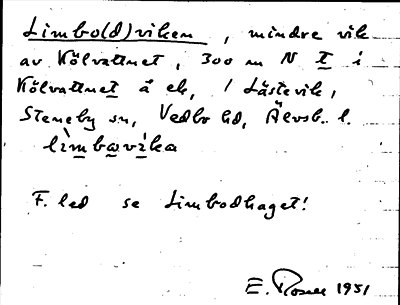 Limbo(d)viken, mindre vik
av Kölvattnet, 300 m N t i
Kölvattnet å ek, / Låstevik,
Steneby sn, Vedbo hd, Älvsb. l.
limbavika
F. led se Limbodhaget!
E. Rosell 1951